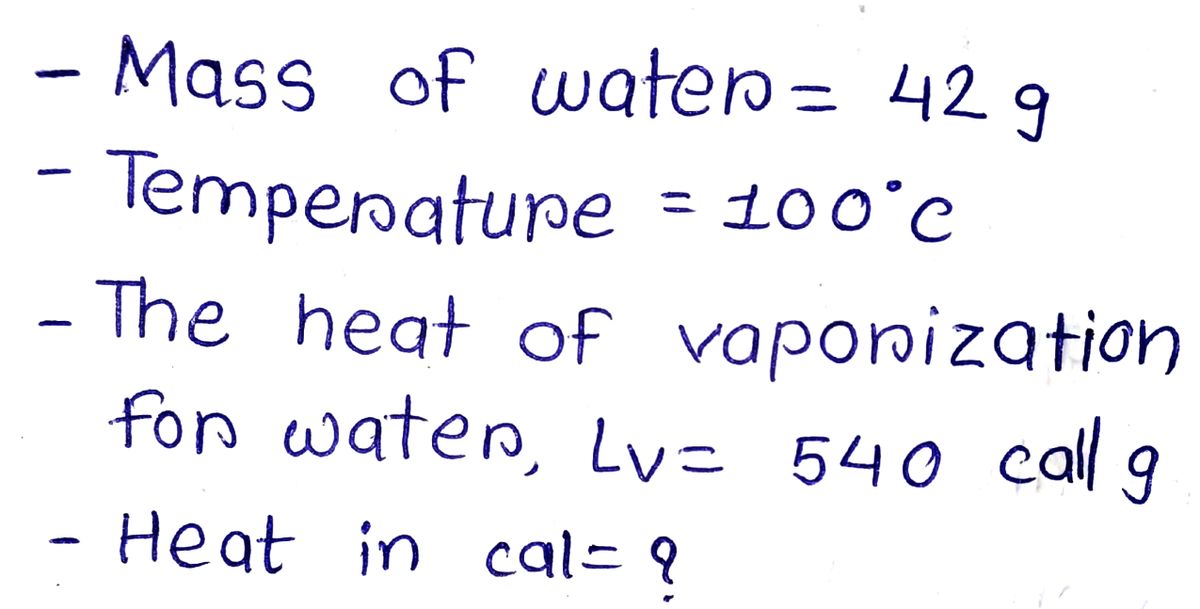 - Mass of water = 42 g
- Temperature = 100°c
- The heat of vaporization
for water, Lv = 540 cal/g
- Heat in cal = ?